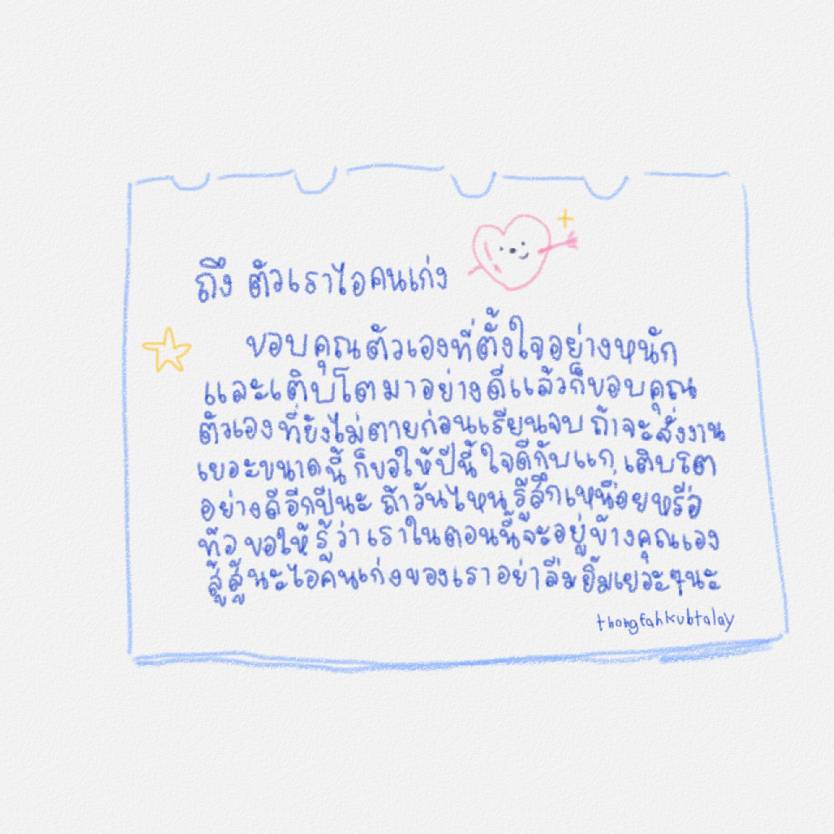 ถึง ตัวเราไอคนเก่ง
ขอบคุณตัวเองที่ตั้งใจอย่างหนัก
และเติบโตมาอย่างดีแล้วก็ขอบคุณ
ตัวเอง ที่ยังไม่ตายก่อนเรียนจบ ถ้าจะสั่งงาน
เยอะขนาดนี้ ก็ขอให้ปีนี้ ใจดีกับแก เติบโต
อย่างดีอีกปีนะ ถ้าวันไหน รู้สึกเหนื่อยหรือ
ท้อ ขอให้ รู้ว่า เราในตอนนี้จะอยู่ข้างคุณเอง
สู้สู้นะไอคนเก่งของเราอย่าลืม ยิ้มเยอะๆนะ
thongfahkubtalay